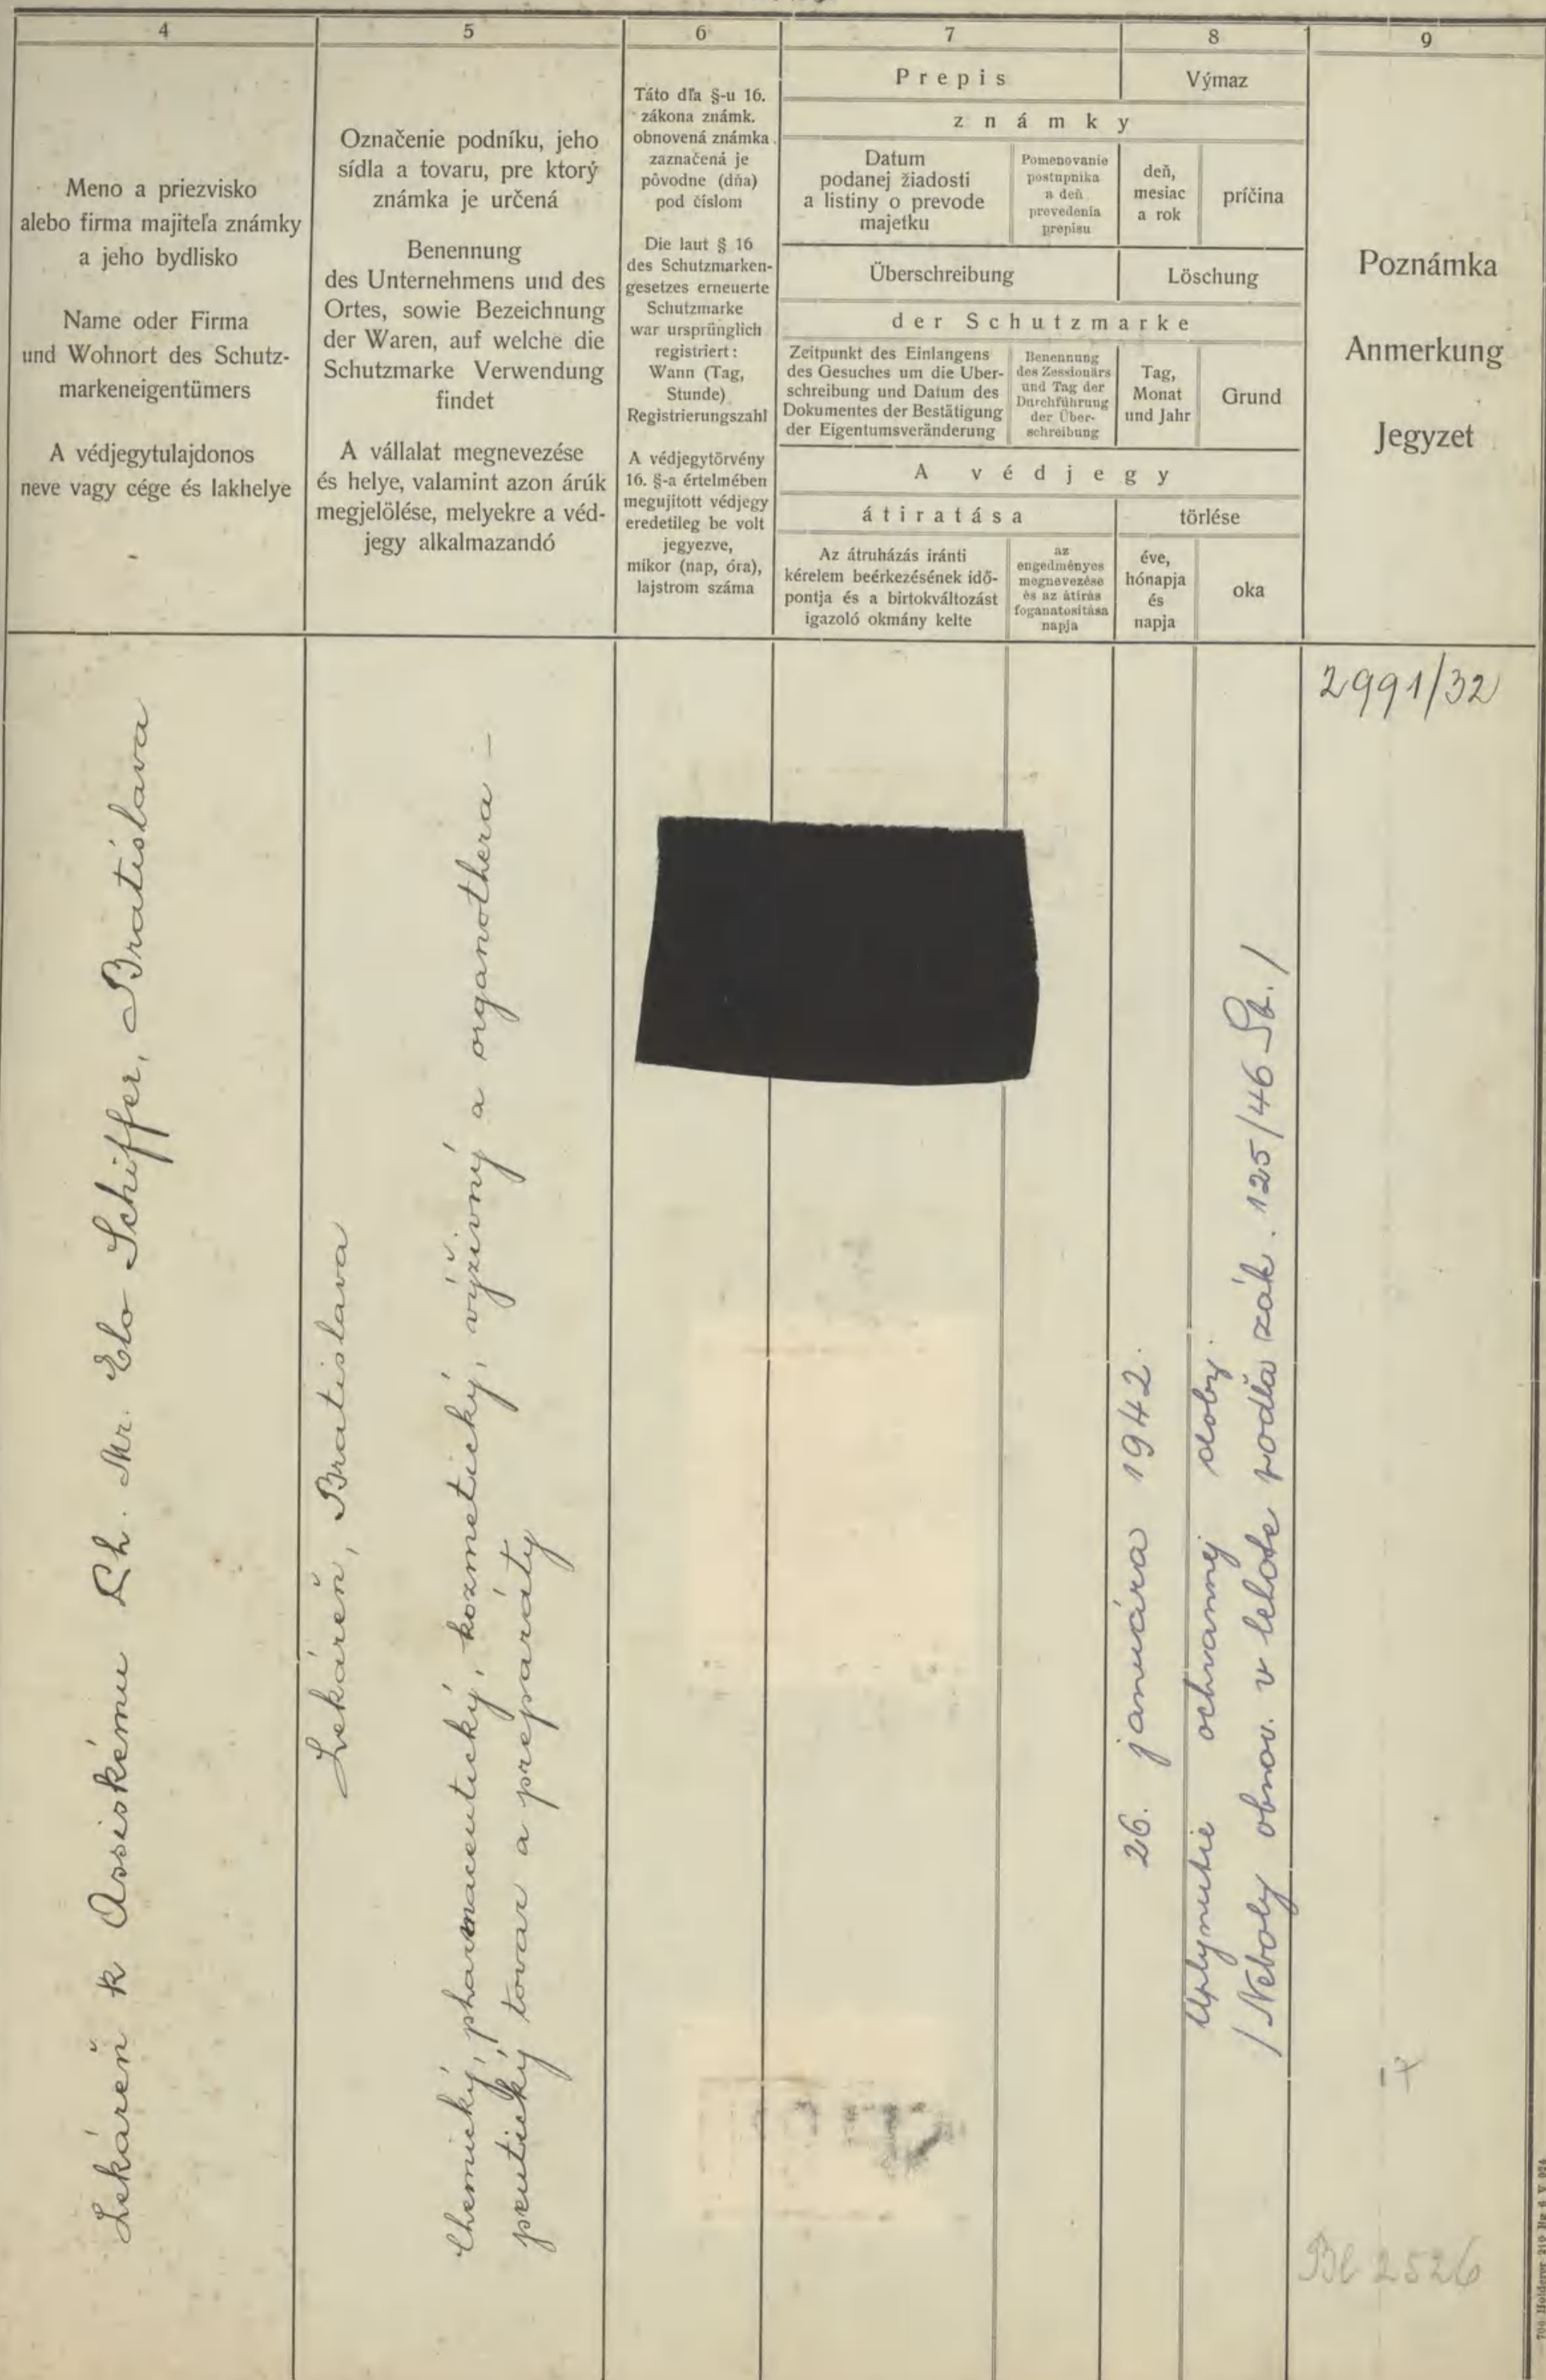 4
5
6
7
8
9
Meno a priezvisko
alebo firma majiteľa známky
a jeho bydlisko
Name oder Firma
und Wohnort des Schutz-
markeneigentümers
A védjegytulajdonos
neve vagy cége és lakhelye
Označenie podníku, jeho
sídla a tovaru, pre ktorý
známka je určená
Benennung
des Unternehmens und des
Ortes, sowie Bezeichnung
der Waren, auf welche die
Schutzmarke Verwendung
findet
A vállalat megnevezése
és helye, valamint azon árúk
megjelölése, melyekre a véd-
jegy alkalmazandó
Táto dľa §-u 16.
zákona známk.
obnovená známka
zaznačená je
pôvodne (dňa)
pod číslom
Die laut § 16
des Schutzmarken-
gesetzes erneuerte
Schutzmarke
war ursprünglich
registriert:
Wann (Tag,
Stunde)
Registrierungszahl
A védjegytörvény
16. §-a értelmében
megujított védjegy
eredetileg be volt
jegyezve,
mikor (nap, óra),
lajstrom száma
Prepis
Výmaz
známky
Datum
podanej žiadosti
a listiny o prevode
majetku
Pomenovanie
postupníka
a deň
prevedenia
prepisu
deň,
mesiac
a rok
príčina
Überschreibung
Löschung
der Schutzmarke
Zeitpunkt des Einlangens
des Gesuches um die Über-
schreibung und Datum des
Dokumentes der Bestätigung
der Eigentumsveränderung
Benennung
des Zessionärs
und Tag der
Durchführung
der Über-
schreibung
Tag,
Monat
und Jahr
Grund
A védjegy
átiratása
törlése
Az átruházás iránti
kérelem beérkezésének idő-
pontja és a birtokváltozást
igazoló okmány kelte
az
engedményes
megnevezése
és az átírás
foganatosítása
napja
éve,
hónapja
és
napja
oka
Poznámka
Anmerkung
Jegyzet
Lekáreň k Assiskému Ph. Mr. Elo Schiffer, Bratislava
Lekáreň, Bratislava
Chemický, pharmaceutický, kozmetický, výživný a organothera-
peutický tovar a preparáty
26. januára 1942.
Uplynutie ochrannej doby.
/Neboly obnov. v lehote podľa zák. 125/46 Sb./
2991/32
17
Bl 2526